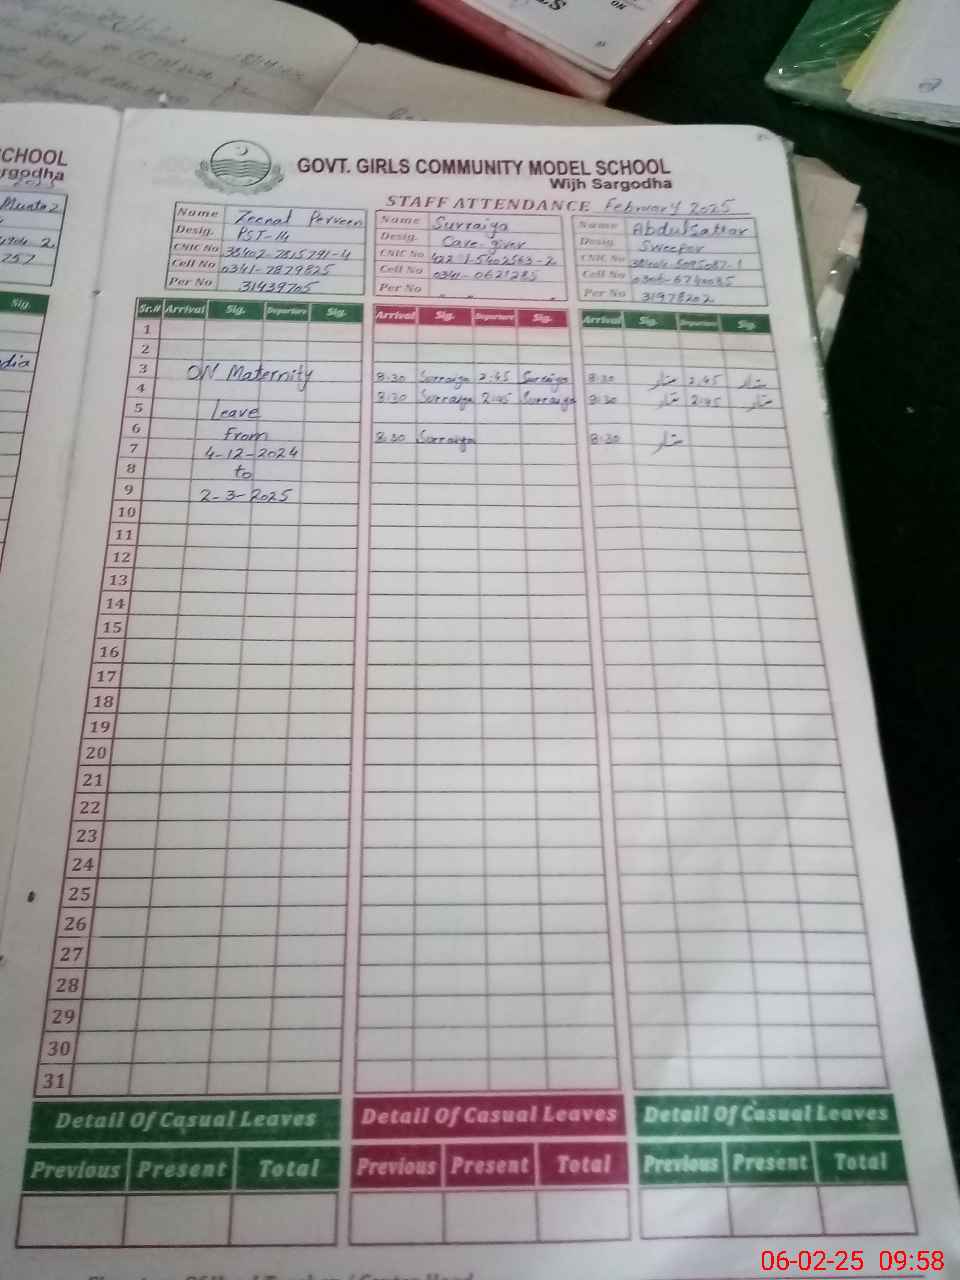 CHOOL
rgodha
GOVT. GIRLS COMMUNITY MODEL SCHOOL
Wijh Sargodha
STAFF ATTENDANCE February 2025
Name Zeenat Perveen
Desig. PST-14
CNIC No 38402-7815791-4
Cell No 0341-7879825
Per No 31439705
Name Surraiya
Desig. Care-giver
CNIC No
Cell No 0341-0621285
Per No
Name Abdulsattar
Desig. Sweeper
CNIC No
Cell No
Per No 31978202
257
Sig.
Sr.# Arrival Sig. Departure Sig. Arrival Sig. Departure Sig. Arrival Sig. Departure Sig.
1
2
3 ON Maternity 8:30 Surraiya 2:45 Surraiya 8:30 ستار 2:45 ستار
4 8:30 Surraiya 2:45 Surraiya 8:30 ستار 2:45 ستار
5 Leave
6 From 8:30 Surraiya 8:30 ستار
7 4-12-2024
8 to
9 2-3-2025
10
11
12
13
14
15
16
17
18
19
20
21
22
23
24
25
26
27
28
29
30
31
Detail Of Casual Leaves Detail Of Casual Leaves Detail Of Casual Leaves
Previous Present Total Previous Present Total Previous Present Total
06-02-25 09:58